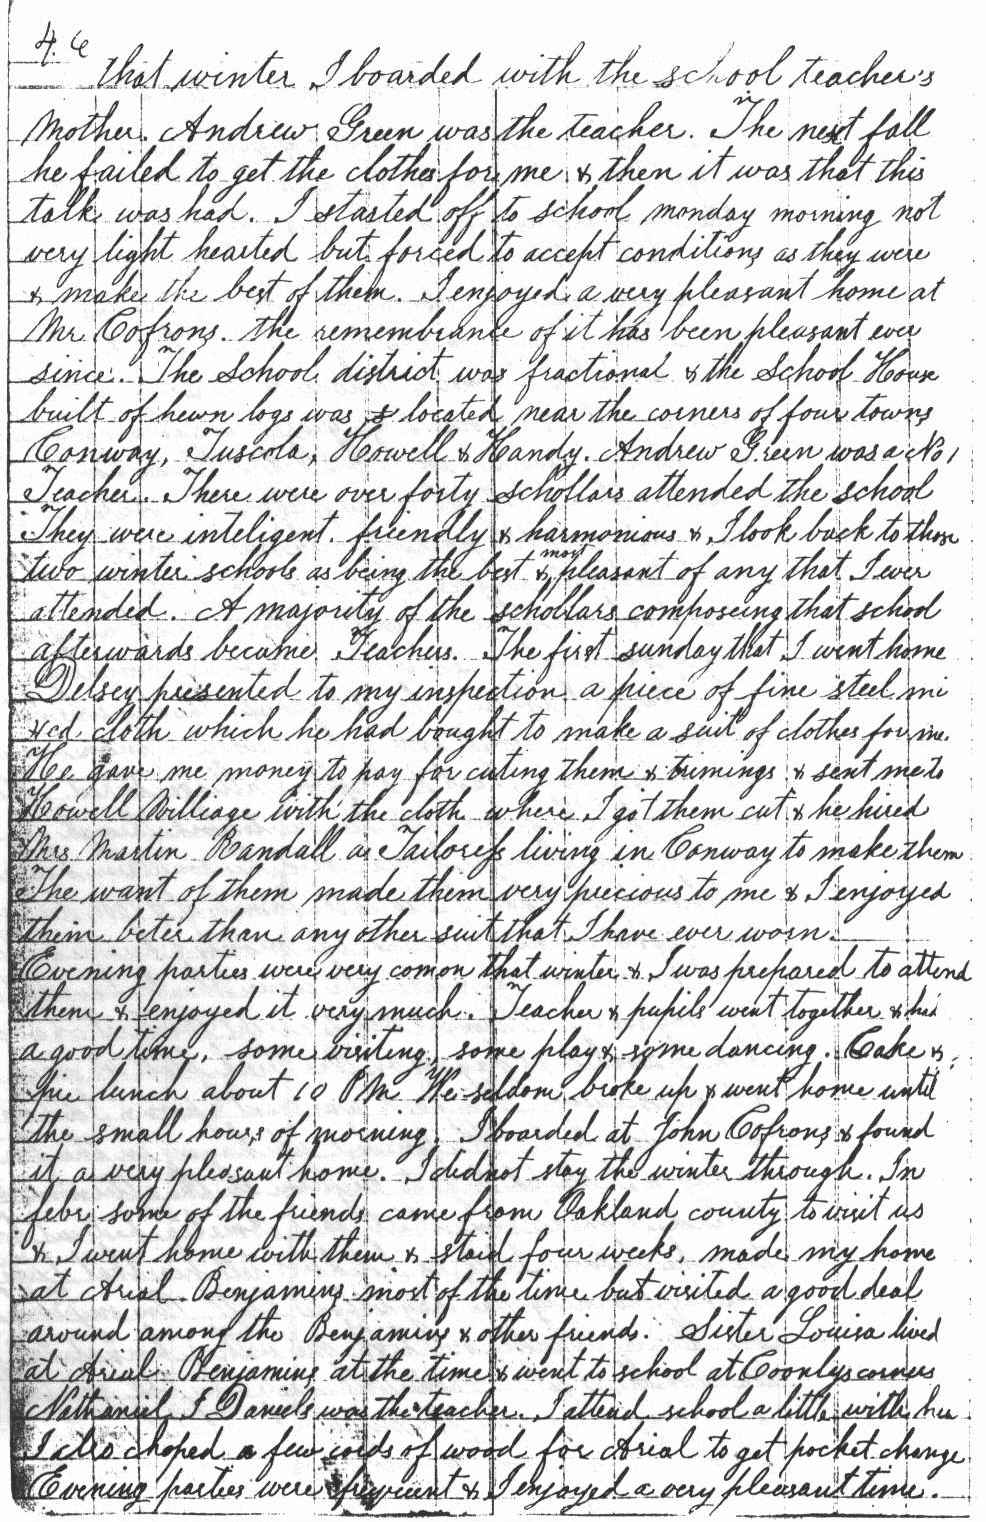 46
that winter I boarded with the school teacher's
Mother. Andrew Green was the teacher. The next fall
he failed to get the clothes for me & then it was that this
talk was had. I started off to school monday morning not
very light hearted but forced to accept conditions as they were
& make the best of them. I enjoyed a very pleasant home at
Mr Cofrons. the remembrance of it has been pleasant ever
since. The School district was fractional & the School House
built of hewn logs was located near the corners of four towns
Conway, Tuscola, Howell & Handy. Andrew Green was a No 1
Teacher. There were over forty schollars attended the school
They were inteligent. friendly & harmonious & I look back to those
two winter schools as being the best & most pleasant of any that I ever
attended. A majority of the schollars composeing that school
afterwards became Teachers. The first sunday that I went home
Delsey presented to my inspection a piece of fine steel mi
xed cloth which he had bought to make a suit of clothes for me.
He gave me money to pay for cuting them & trimings & sent me to
Howell Villiage with the cloth where I got them cut & he hired
Mrs Martin Randall a Tailoress living in Conway to make them
The want of them made them very precious to me & I enjoyed
them beter than any other suit that I have ever worn.
Evening parties were very comon that winter & I was prepared to attend
them & enjoyed it very much. Teacher & pupils went together & had
a good time, some visiting, some play & some dancing. Cake &
pie lunch about 10 PM We seldom broke up & went home until
the small hours of morning. I boarded at John Cofrons & found
it a very pleasant home. I did not stay the winter through. In
febr some of the friends came from Oakland county to visit us
& I went home with them & staid four weeks, made my home
at Arial Benjamins most of the time but visited a good deal
around among the Benjamins & other friends. Sister Louisa lived
at Arial Benjamins at the time & went to school at Coonlys corners
Nathaniel I Daniels was the teacher. I attend school a little with her
I also choped a few cords of wood for Arial to get pocket change
Evening parties were frequent & I enjoyed a very pleasant time.